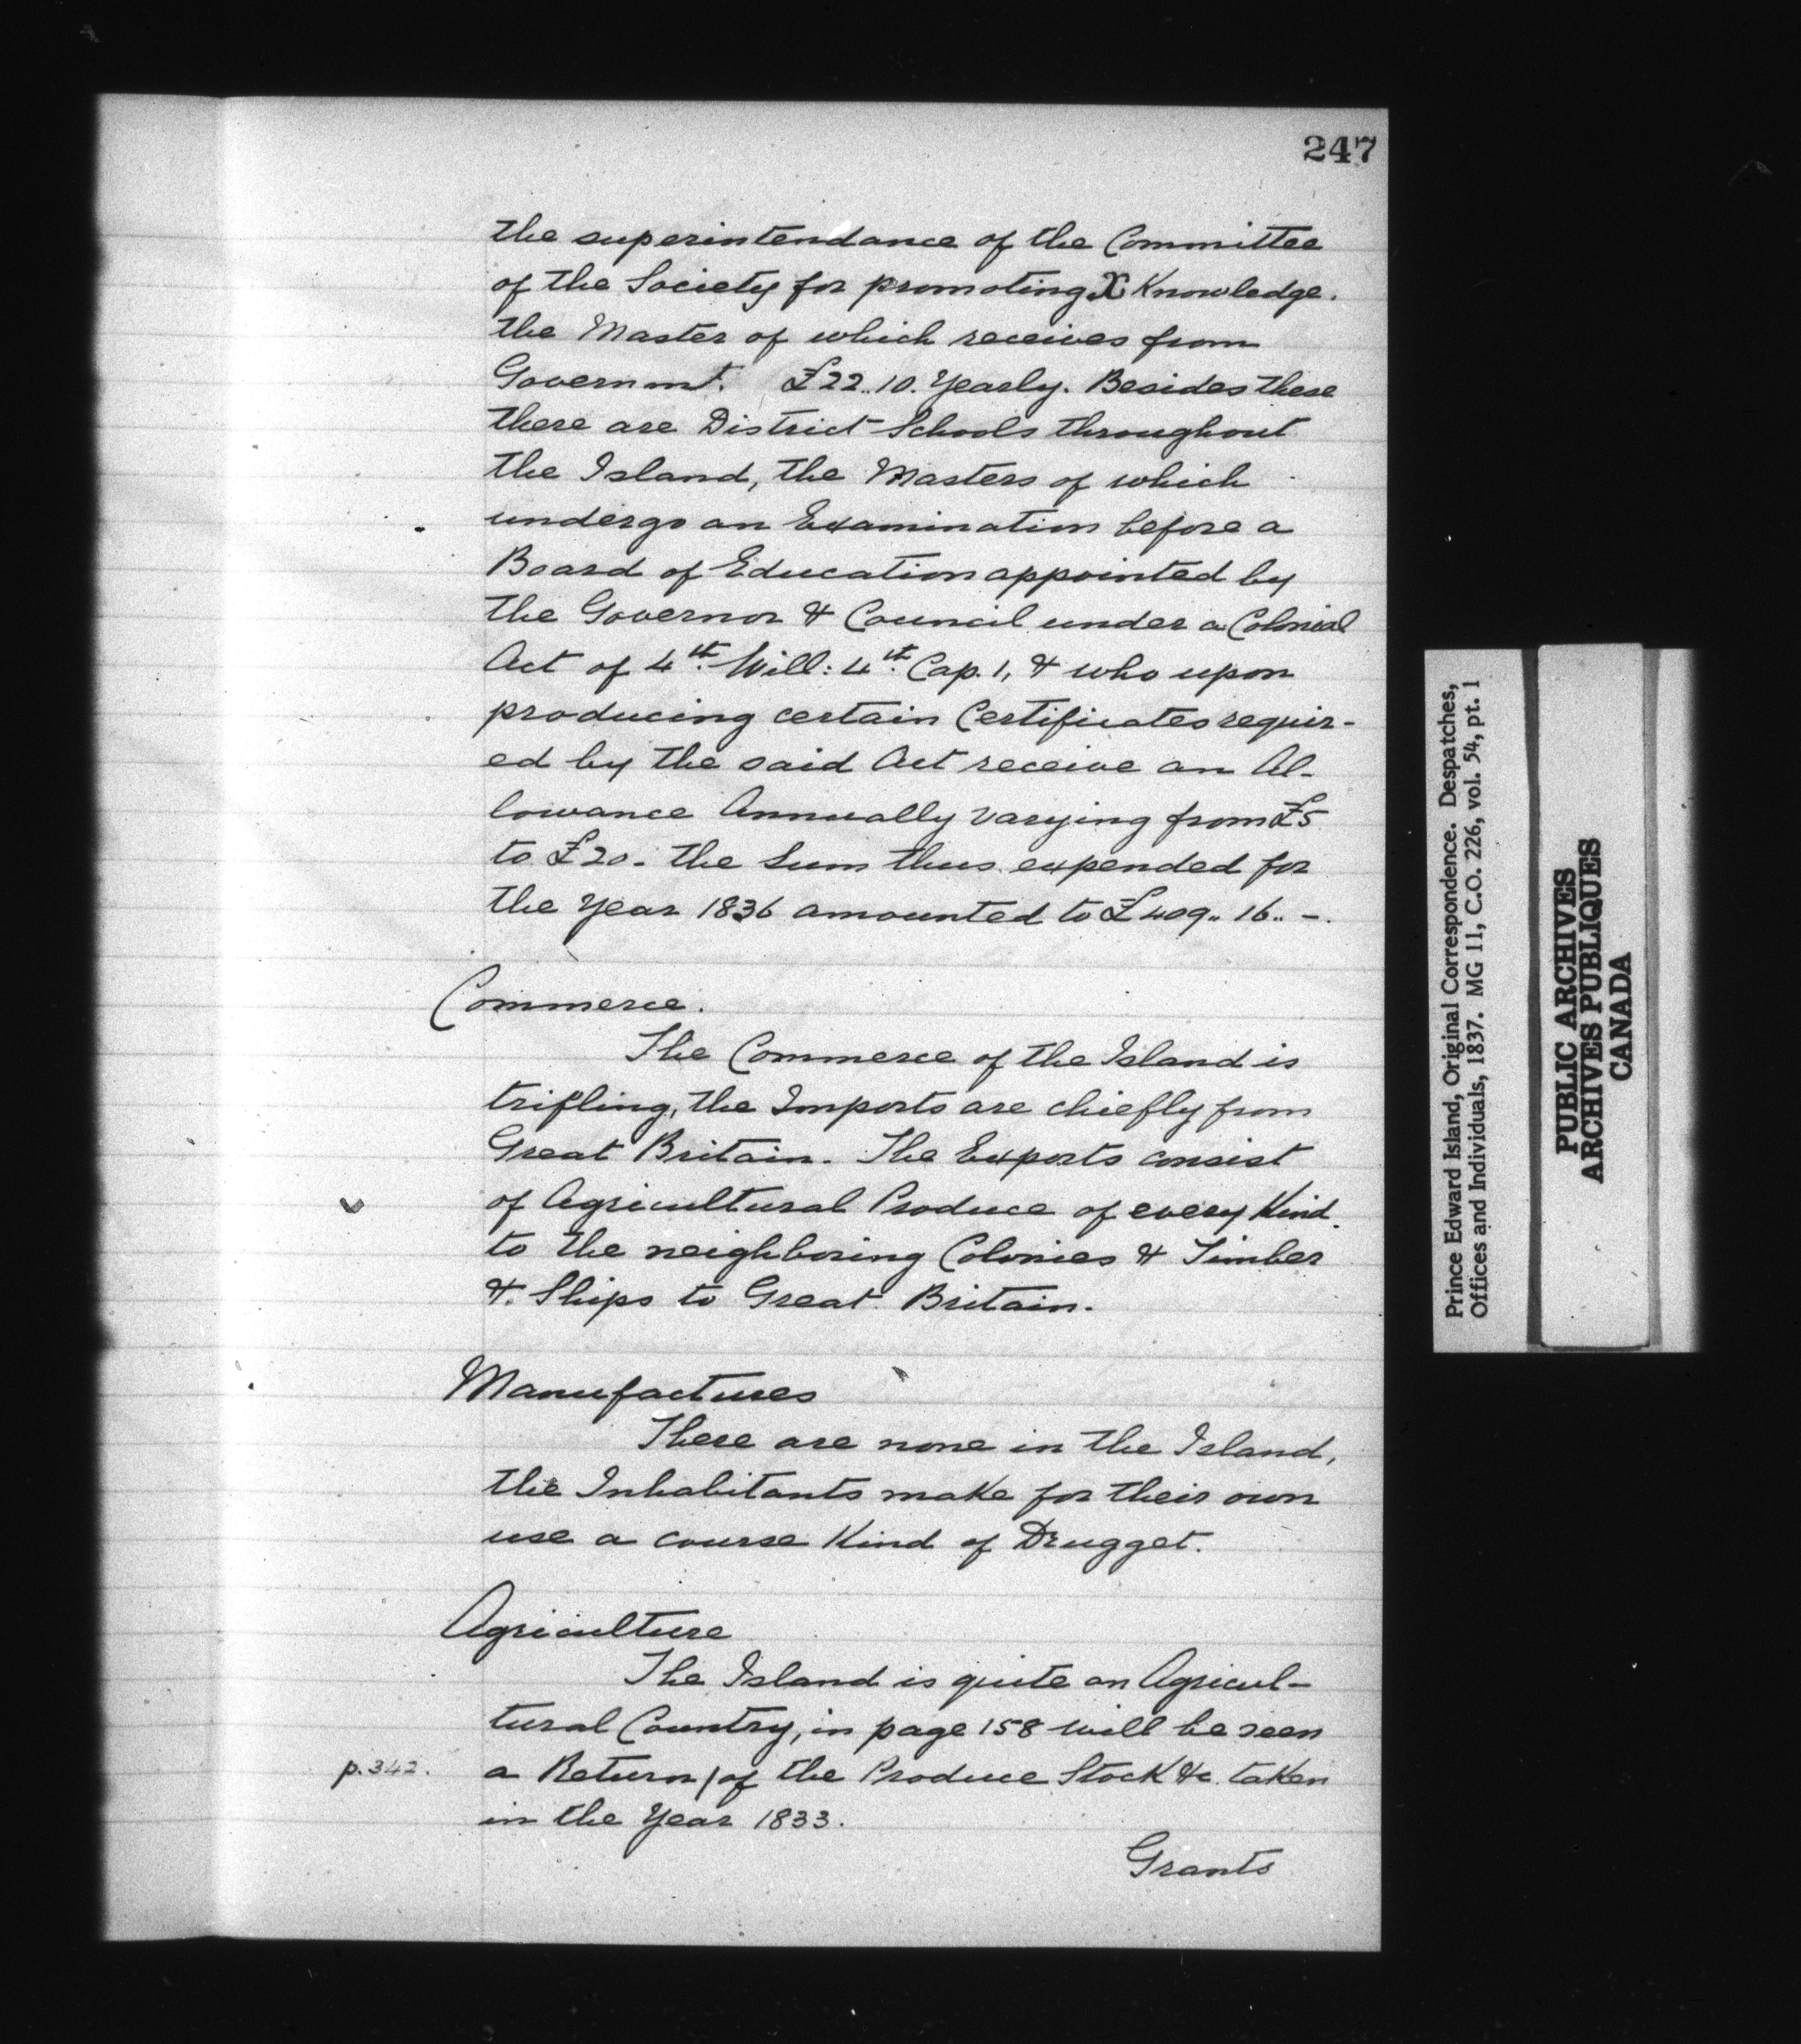 247
the superintendance of the Committee
of the Society for promoting X Knowledge.
the Master of which receives from
Governmt. £22..10. Yearly. Besides these
there are District Schools throughout
the Island, the Masters of which
undergo an Examination before a
Board of Education appointed by
the Governor & Council under a Colonial
Act of 4th. Will: 4th. Cap. 1, & who upon
producing certain Certificates requir-
ed by the said Act receive an Al-
lowance Annually varying from £5
to £20. the Sum thus expended for
the Year 1836 amounted to £409.. 16.. -.
Commerce.
The Commerce of the Island is
trifling, the Imports are chiefly from
Great Britain. The Exports consist
of Agricultural Produce of every Kind.
to the neighboring Colonies & Timber
&. Ships to Great Britain.
Manufactures
There are none in the Island,
the Inhabitants make for their own
use a course Kind of Drugget.
Agriculture
The Island is quite an Agricul-
tural Country, in page 158 will be seen
p.342. a Return/of the Produce Stock &c. taken
in the Year 1833.
Grants
Prince Edward Island, Original Correspondence. Despatches,
Offices and Individuals, 1837. MG 11, C.O. 226, vol. 54, pt. 1
PUBLIC ARCHIVES
ARCHIVES PUBLIQUES
CANADA